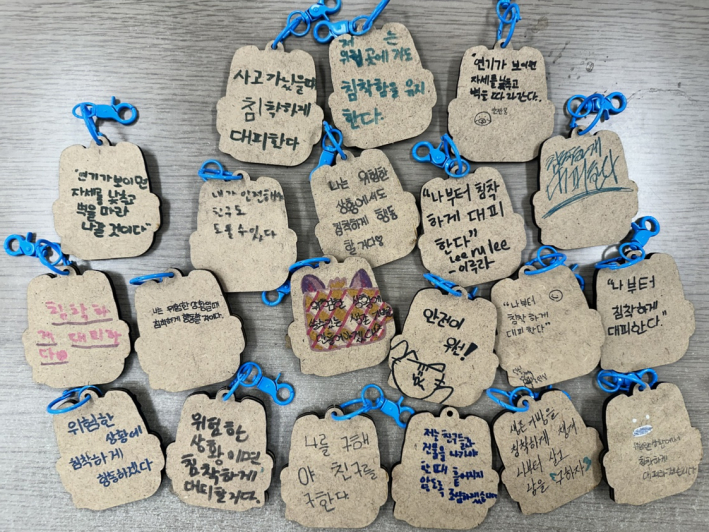 사고가 났을때
침착하게
대피한다
저는
위험 곳에 가도
침착함을 유지
한다.
"연기가 보이면
자세를 낮추고
벽을 따라간다.
연기가 보이면
자세를 낮추고
벽을 따라
나갈 것이다"
내가 안전해야
친구도
도울 수 있다
나는 위험한
상황에서도
침착하게 행동
할 거다!
"나부터 침착
하게 대피
한다"
Lee ru lee
침착하게
대피한다
침착하
게 대피한
다
나는 위험한 상황일때
침착하게 행동할 것이다.
위험한 상황에
안전이
우선!!
"나부터
침착하게
대피한다"
"나부터
침착하게
대피한다."
위험한
상황에
침착하게
행동하겠다
위험한
상황이면
침착하게
대피할거다.
나를 구해
야 친구를
구한다
저는 친구들과
건물을 나가야
할 때 흩어지지
않도록
조심하겠습니다
침착하게
나부터 살고
남을 구하자
침착하게